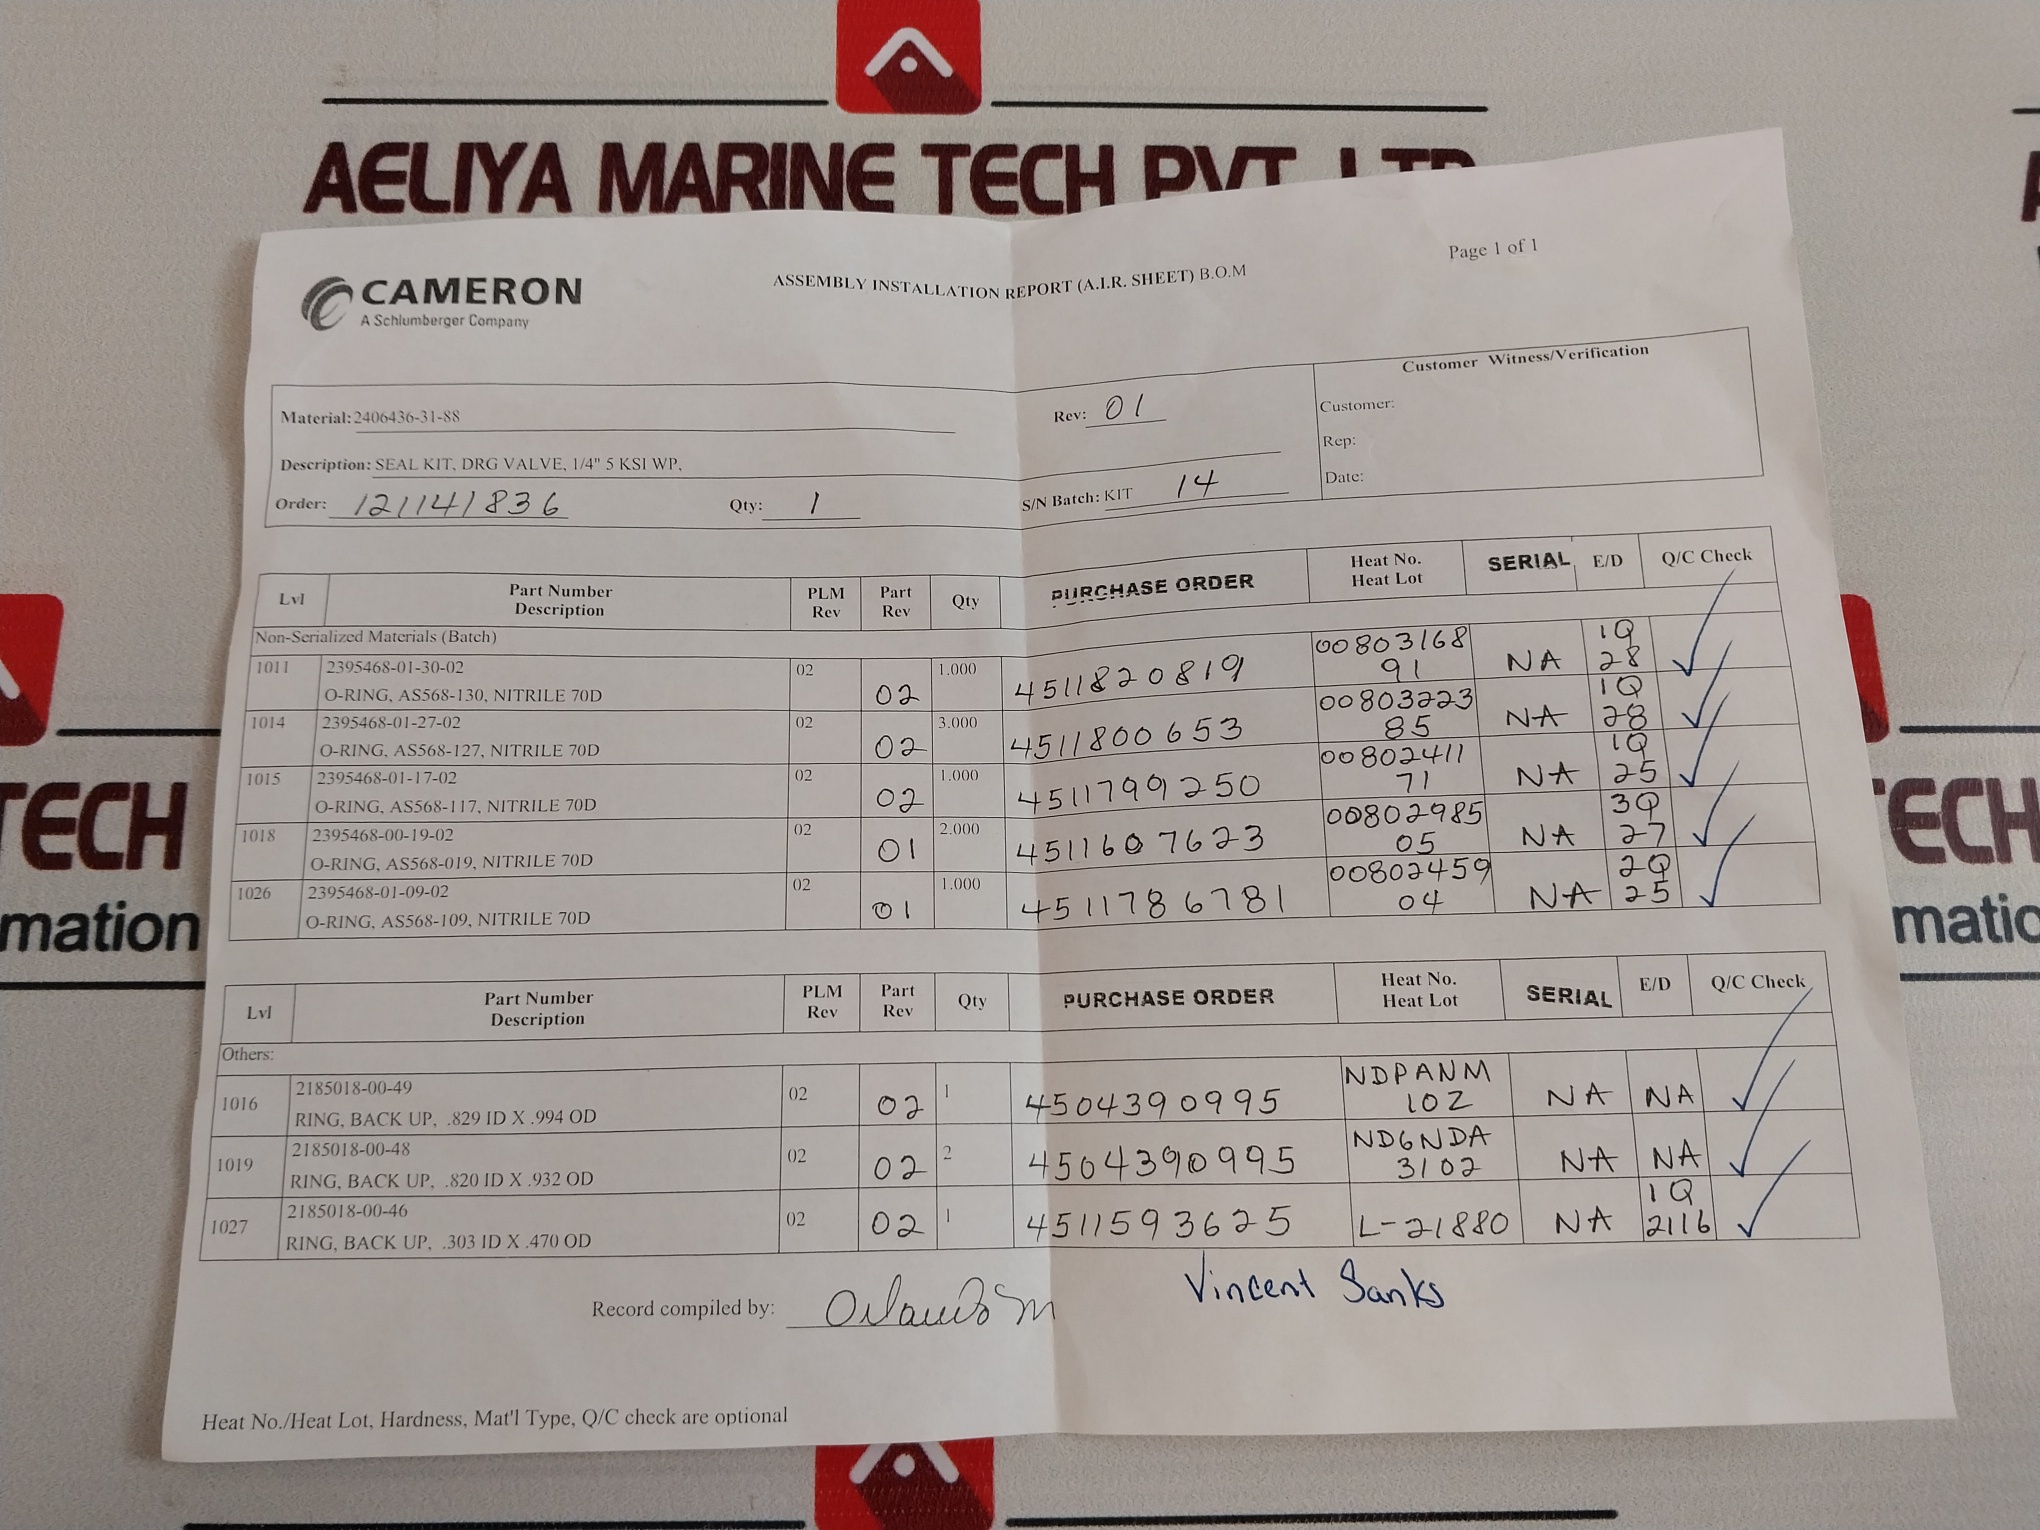 AELIYA MARINE TECH PVT. LTD
Page 1 of 1
CAMERON
A Schlumberger Company
ASSEMBLY INSTALLATION REPORT (A.I.R. SHEET) B.O.M
Customer Witness/Verification
Material: 2406436-31-88
Rev: 01
Customer:
Rep:
Description: SEAL KIT, DRG VALVE, 1/4" 5 KSI WP,
Date:
Order: 121141836 Qty: 1 S/N Batch: KIT 14
Lvl Part Number Description PLM Rev Part Rev Qty PURCHASE ORDER Heat No. Heat Lot SERIAL E/D Q/C Check
Non-Serialized Materials (Batch)
1011 2395468-01-30-02 02 02 1.000 4511820819 0080316891 NA 1Q 28
O-RING, AS568-130, NITRILE 70D
1014 2395468-01-27-02 02 02 3.000 4511800653 0080322385 NA 1Q 28
O-RING, AS568-127, NITRILE 70D
1015 2395468-01-17-02 02 02 1.000 4511799250 0080241171 NA 1Q 25
O-RING, AS568-117, NITRILE 70D
1018 2395468-00-19-02 02 01 2.000 4511607623 0080298505 NA 3Q 27
O-RING, AS568-019, NITRILE 70D
1026 2395468-01-09-02 02 01 1.000 4511786781 0080245904 NA 2Q 25
O-RING, AS568-109, NITRILE 70D
Lvl Part Number Description PLM Rev Part Rev Qty PURCHASE ORDER Heat No. Heat Lot SERIAL E/D Q/C Check
Others:
1016 2185018-00-49 02 02 1 4504390995 NDPANM 10Z NA NA
RING, BACK UP, .829 ID X .994 OD
1019 2185018-00-48 02 02 2 4504390995 NDGNDA 3102 NA NA
RING, BACK UP, .820 ID X .932 OD
1027 2185018-00-46 02 02 1 4511593625 L-21880 NA 1Q 2116
RING, BACK UP, .303 ID X .470 OD
Record compiled by: Orlando M
Vincent Sanks
Heat No./Heat Lot, Hardness, Mat'l Type, Q/C check are optional
TECH
mation
TECH
matio